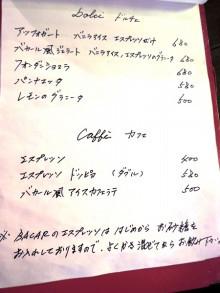 Dolci ドルチェ
アッフォガート バニラアイス エスプレッソがけ 680
バカール風ジェラート バニラアイス,エスプレッソのグラニータ 680
フォンダンショコラ 680
パンナコッタ 580
レモンのグラニータ 500
Caffè カフェ
エスプレッソ 400
エスプレッソ ドッピヨ (ダブル) 580
バカール風 アイスカフェラテ 500
※ BACARのエスプレッソは はじめから お砂糖を
お入れしておりますので、よくかき混ぜてから お飲み下さい。